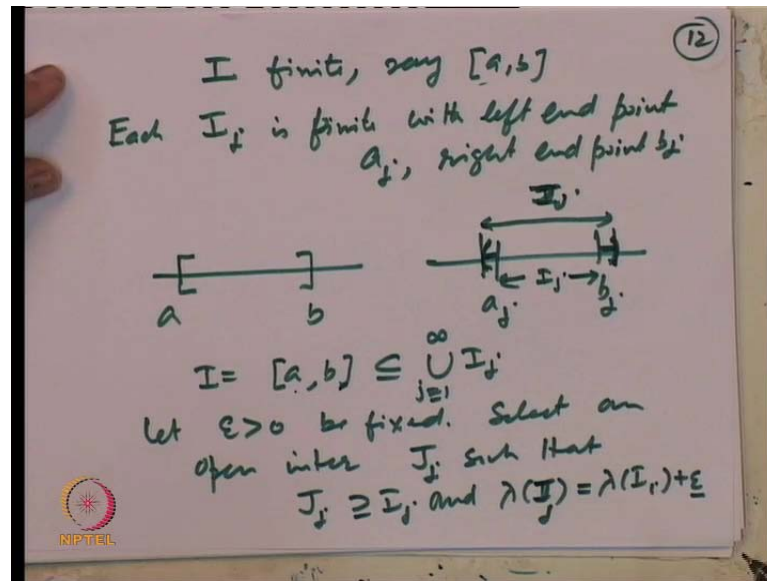 12
I finite, say [a,b]
Each I_j is finite with left end point
a_j, right end point b_j
I_j
a b
a_j ← I_j → b_j
I = [a,b] ⊆ ∞ ∪ j=1 I_j
Let ε>0 be fixed. Select an
open inter J_j such that
J_j ⊇ I_j and λ(I_j) = λ(I_j)+ε
NPTEL